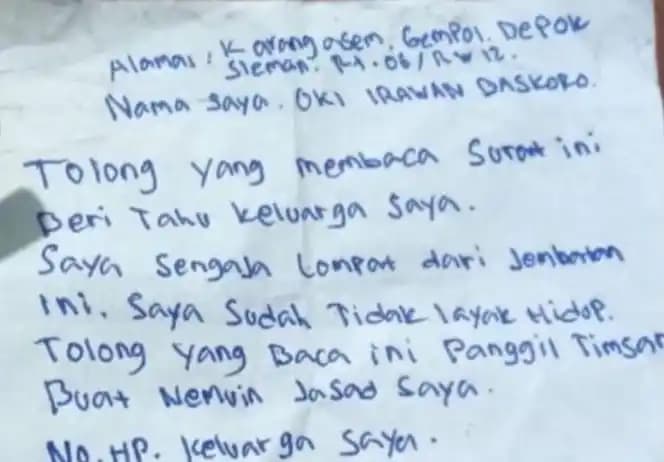 Alamat : Karangasem. Gempol. Depok
Sleman. RT. 06 / RW 12.
Nama saya. OKI IRAWAN BASKORO.
Tolong yang membaca Surat ini
Beri Tahu keluarga saya.
Saya Sengaja Lompat dari Jembatan
ini. Saya Sudah Tidak layak Hidop.
Tolong yang Baca ini Panggil Timsar
Buat Nemuin Jasad Saya.
No. HP. keluarga saya.